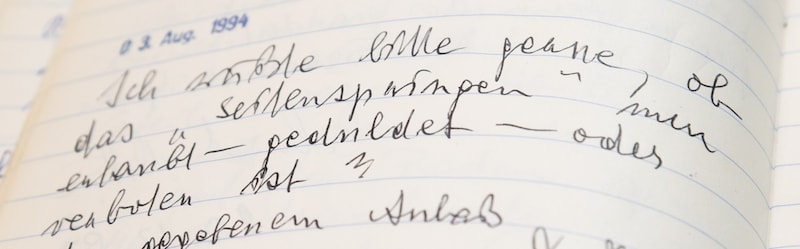 03. Aug. 1994
Ich wüßte bitte gerne, ob
das "Seitenspringen" nun
erlaubt – geduldet – oder
verboten ist?
gegebenem Anlaß